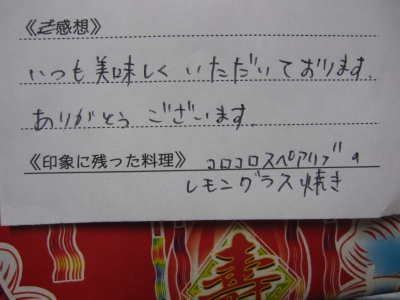 《ご感想》
いつも美味しくいただいております。
ありがとうございます。
《印象に残った料理》 コロコロスペアリブの
レモングラス焼き
寿